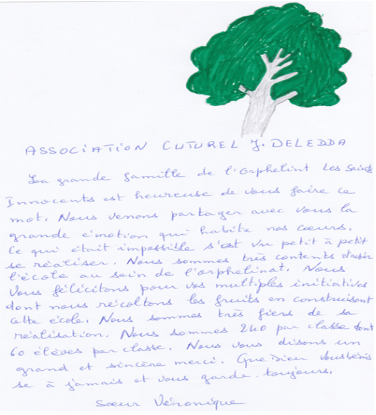 ASSOCIATION CUTUREL G. DELEDDA
La grande famille de l'Orphelint Les Saints
Innocents est heureuse de vous faire ce
mot. Nous venons partager avec vous la
grande émotion qui habite nos cœurs.
Ce qui était impossible s'est vu petit à petit
se réaliser. Nous sommes très contents d'avoir
l'école au sein de l'orphelinat. Nous
Vous félicitons pour vos multiples initiatives
dont nous récoltons les fruits en construisant
cette école. Nous sommes très fiers de sa
réalisation. Nous sommes 240 par classe dont
60 élèves par classe. Nous vous disons un
grand et sincère merci. Que Dieu vous bénis
se à jamais et vous garde toujours.
Sœur Véronique